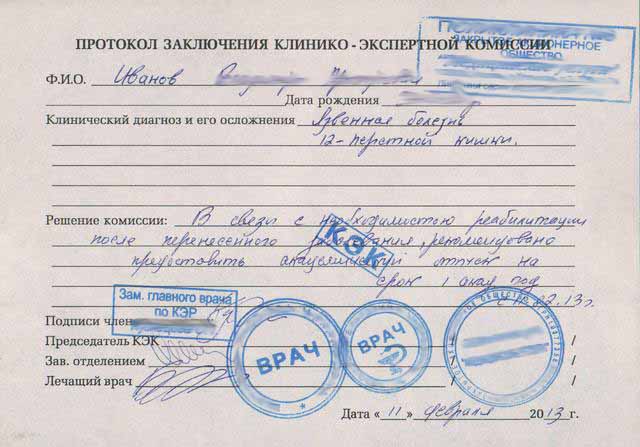 ПРОТОКОЛ ЗАКЛЮЧЕНИЯ КЛИНИКО - ЭКСПЕРТНОЙ КОМИССИИ
ЗАКРЫТОЕ АКЦИОНЕРНОЕ
ОБЩЕСТВО
Ф.И.О. Иванов
Дата рождения
Клинический диагноз и его осложнения Язвенная болезнь
12-перстной кишки.
Решение комиссии: В связи с необходимостью реабилитации
после перенесенного заболевания, рекомендовано
предоставить академический отпуск на
срок 1 акад год
с 11.02.13г.
КЭК
Зам. главного врача
по КЭР
Подписи член
Председатель КЭК / /
Зав. отделением / /
Лечащий врач / /
ВРАЧ
ВРАЧ
Дата « 11 » февраля 2013 г.